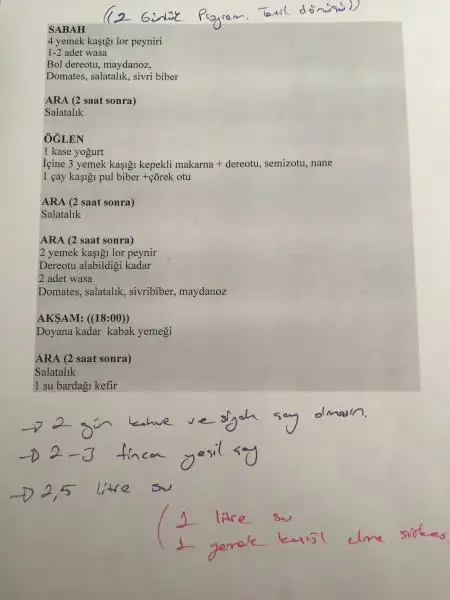 ((2 Günlük Program. Tatil dönüşü))
SABAH
4 yemek kaşığı lor peyniri
1-2 adet wasa
Bol dereotu, maydanoz,
Domates, salatalık, sivri biber
ARA (2 saat sonra)
Salatalık
ÖĞLEN
1 kase yoğurt
İçine 3 yemek kaşığı kepekli makarna + dereotu, semizotu, nane
1 çay kaşığı pul biber +çörek otu
ARA (2 saat sonra)
Salatalık
ARA (2 saat sonra)
2 yemek kaşığı lor peynir
Dereotu alabildiği kadar
2 adet wasa
Domates, salatalık, sivribiber, maydanoz
AKŞAM: ((18:00))
Doyana kadar kabak yemeği
ARA (2 saat sonra)
Salatalık
1 su bardağı kefir
→ 2 gün kahve ve siyah çay olmasın.
→ 2-3 fincan yeşil çay
→ 2,5 litre su
( 1 litre su
1 yemek kaşığı elma sirkesi